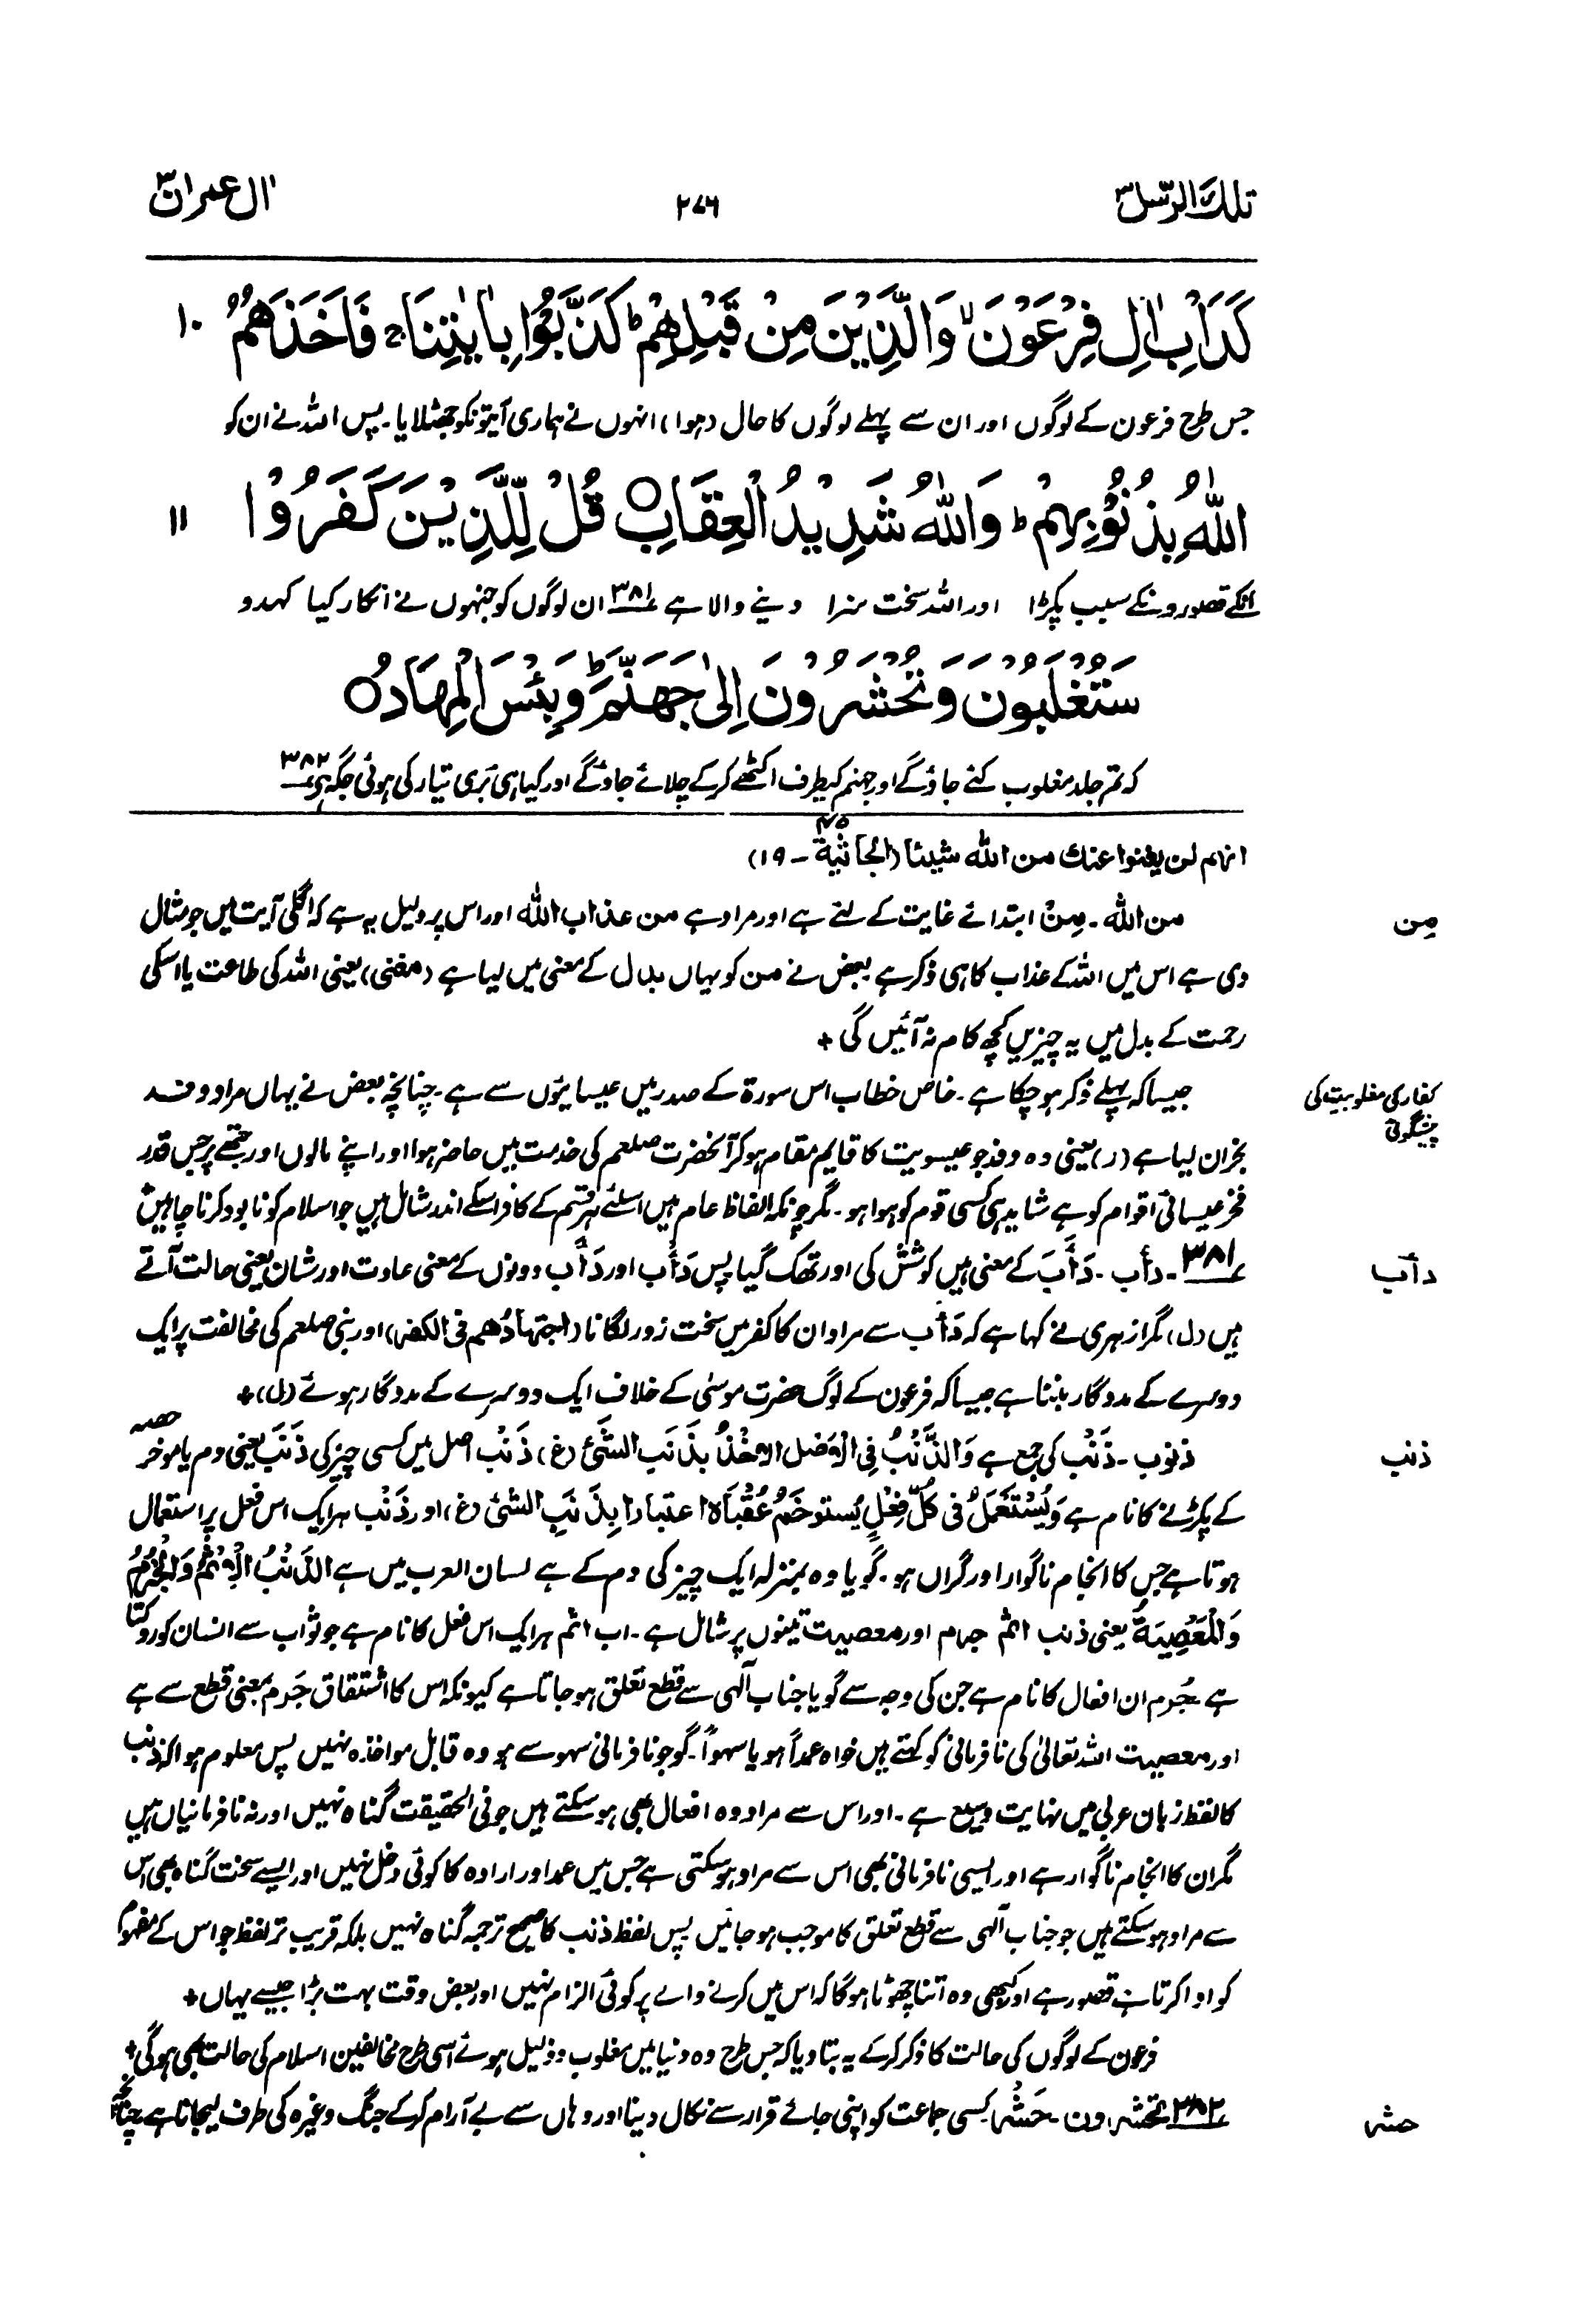 تلك الرسل ۳
۲۷۶
اٰل عمران ۳
كَدَاْبِ اٰلِ فِرْعَوْنَ ۙ وَالَّذِيْنَ مِنْ قَبْلِهِمْ ؕ كَذَّبُوْا بِاٰيٰتِنَا ۚ فَاَخَذَهُمُ ۱۰
جس طرح فرعون کے لوگوں اور ان سے پہلے لوگوں کا حال (ہوا) انہوں نے ہماری آیتونکو جھٹلایا۔ پس اللہ نے ان کو
اللّٰهُ بِذُنُوْبِهِمْ ؕ وَاللّٰهُ شَدِيْدُ الْعِقَابِ ○ قُلْ لِّلَّذِيْنَ كَفَرُوْا ۱۱
انکے قصورونکے سبب پکڑا اور اللہ سخت سزا دینے والا ہے ۳۸۱ ان لوگوں کو جنہوں نے انکار کیا کہدو
سَتُغْلَبُوْنَ وَتُحْشَرُوْنَ اِلٰى جَهَنَّمَ ؕ وَبِئْسَ الْمِهَادُ ○
کہ تم جلد مغلوب کئے جاؤ گے اور جہنم کیطرف اکٹھے کر کے چلائے جاؤ گے اور کیا ہی بُری تیار کی ہوئی جگہ ہے ۳۸۲
انهم لن يغنوا عنك من الله شيئا (الجاثية ۴۵ ـ ۱۹)
مِن
من اللہ ۔ مِنْ ابتدائے غایت کے لئے ہے اور مراد ہے من عذاب اللہ اور اس پر دلیل یہ ہے کہ اگلی آیت میں جو مثال
دی ہے اس میں اللہ کے عذاب کا ہی ذکر ہے بعض نے من کو یہاں بدل کے معنی میں لیا ہے (مغنی) یعنی اللہ کی طاعت یا اسکی
رحمت کے بدل میں یہ چیزیں کچھ کام نہ آئیں گی +
کفار کی مغلوبیت کی پیشگوئی
جیسا کہ پہلے ذکر ہو چکا ہے۔ خاص خطاب اس سورۃ کے صدر میں عیسایئوں سے ہے۔ چنانچہ بعض نے یہاں مراد وفد
نجران لیا ہے (ر) یعنی وہ وفد جو عیسویت کا قایم مقام ہو کر آنحضرت صلعم کی خدمت میں حاضر ہوا اور اپنے مالوں اور جتھے پر جس قدر
فخر عیسائی اقوام کو ہے شاید ہی کسی قوم کو ہوا ہو۔ مگر چونکہ الفاظ عام ہیں اسلئے ہر قسم کے کافر اسکے اندر شامل ہیں جو اسلام کو نابود کرنا چاہیں
دأب
۳۸۱ ۔ دأب ۔ دَأَبَ کے معنی ہیں کوشش کی اور تھک گیا پس دَأْب اور دَأَب دونوں کے معنی عادت اور شان یعنی حالت آتے
ہیں (ل) مگر ازہری نے کہا ہے کہ دَأْب سے مراد ان کا کفر میں سخت زور لگانا (اجتهادُهم فی الكفر) اور نبی صلعم کی مخالفت پر ایک
دوسرے کے مددگار بننا ہے جیسا کہ فرعون کے لوگ حضرت موسیٰ کے خلاف ایک دوسرے کے مددگار ہوئے (ل) +
ذنب
ذنوب ۔ ذَنْب کی جمع ہے وَالذَّنْبُ فِی الْاَصْلِ الاَخْذُ بِذَنَبِ الشَّئِ (غ) ذَنْب اصل میں کسی چیز کی ذَنَب یعنی دم یا موخر حصہ
کے پکڑنے کا نام ہے وَیُسْتَعْمَلُ فی کُلِّ فِعْلٍ یُستوخَمُ عُقْبَاہُ اعتبارا بِذَنَبِ الشئ (غ) اور ذَنْب ہر ایک اس فعل پر استعمال
ہوتا ہے جس کا انجام ناگوار اور گراں ہو۔ گویا وہ بمنزلہ ایک چیز کی دم کے ہے لسان العرب میں ہے الذَّنْبُ الْاِثْمُ وَالْجُرْمُ
وَالْمَعْصِیَةُ یعنی ذنب اثم جرم اور معصیت تینوں پر شامل ہے۔ اب اثم ہر ایک اس فعل کا نام ہے جو ثواب سے انسان کو روکتا
ہے جُرم ان افعال کا نام ہے جن کی وجہ سے گویا جناب آلہی سے قطع تعلق ہو جاتا ہے کیونکہ اس کا اشتقاق جَرم بمعنی قطع سے ہے
اور معصیت اللہ تعالیٰ کی نافرمانی کو کہتے ہیں خواہ عمداً ہو یا سہواً۔ گو جو نافرمانی سہو سے ہو وہ قابل مواخذہ نہیں پس معلوم ہوا کہ ذنب
کا لفظ زبان عربی میں نہایت وسیع ہے۔ اور اس سے مراد وہ افعال بھی ہو سکتے ہیں جو فی الحقیقت گناہ نہیں اور نہ نافرمانیاں ہیں
مگر ان کا انجام ناگوار ہے اور ایسی نافرمانی بھی اس سے مراد ہو سکتی ہے جس میں عمد اور ارادہ کا کوئی دخل نہیں اور ایسے سخت گناہ بھی اس
سے مراد ہو سکتے ہیں جو جناب آلہی سے قطع تعلق کا موجب ہو جائیں پس لفظ ذنب کا صحیح ترجمہ گناہ نہیں بلکہ قریب تر لفظ جو اس کے مفہوم
کو ادا کرتا ہے قصور ہے اور کبھی وہ اتنا چھوٹا ہوگا کہ اس میں کرنے والے پر کوئی الزام نہیں اور بعض وقت بہت بڑا جیسے یہاں +
فرعون کے لوگوں کی حالت کا ذکر کر کے یہ بتا دیا کہ جس طرح وہ دنیا میں مغلوب و ذلیل ہوئے اسی طرح مخالفین اسلام کی حالت بھی ہوگی +
حشر
۳۸۲ تحشرون ۔ حَشْر کسی جماعت کو اپنی جائے قرار سے نکال دینا اور وہاں سے بے آرام کر کے جنگ وغیرہ کی طرف لیجانا ہے چنانچہ